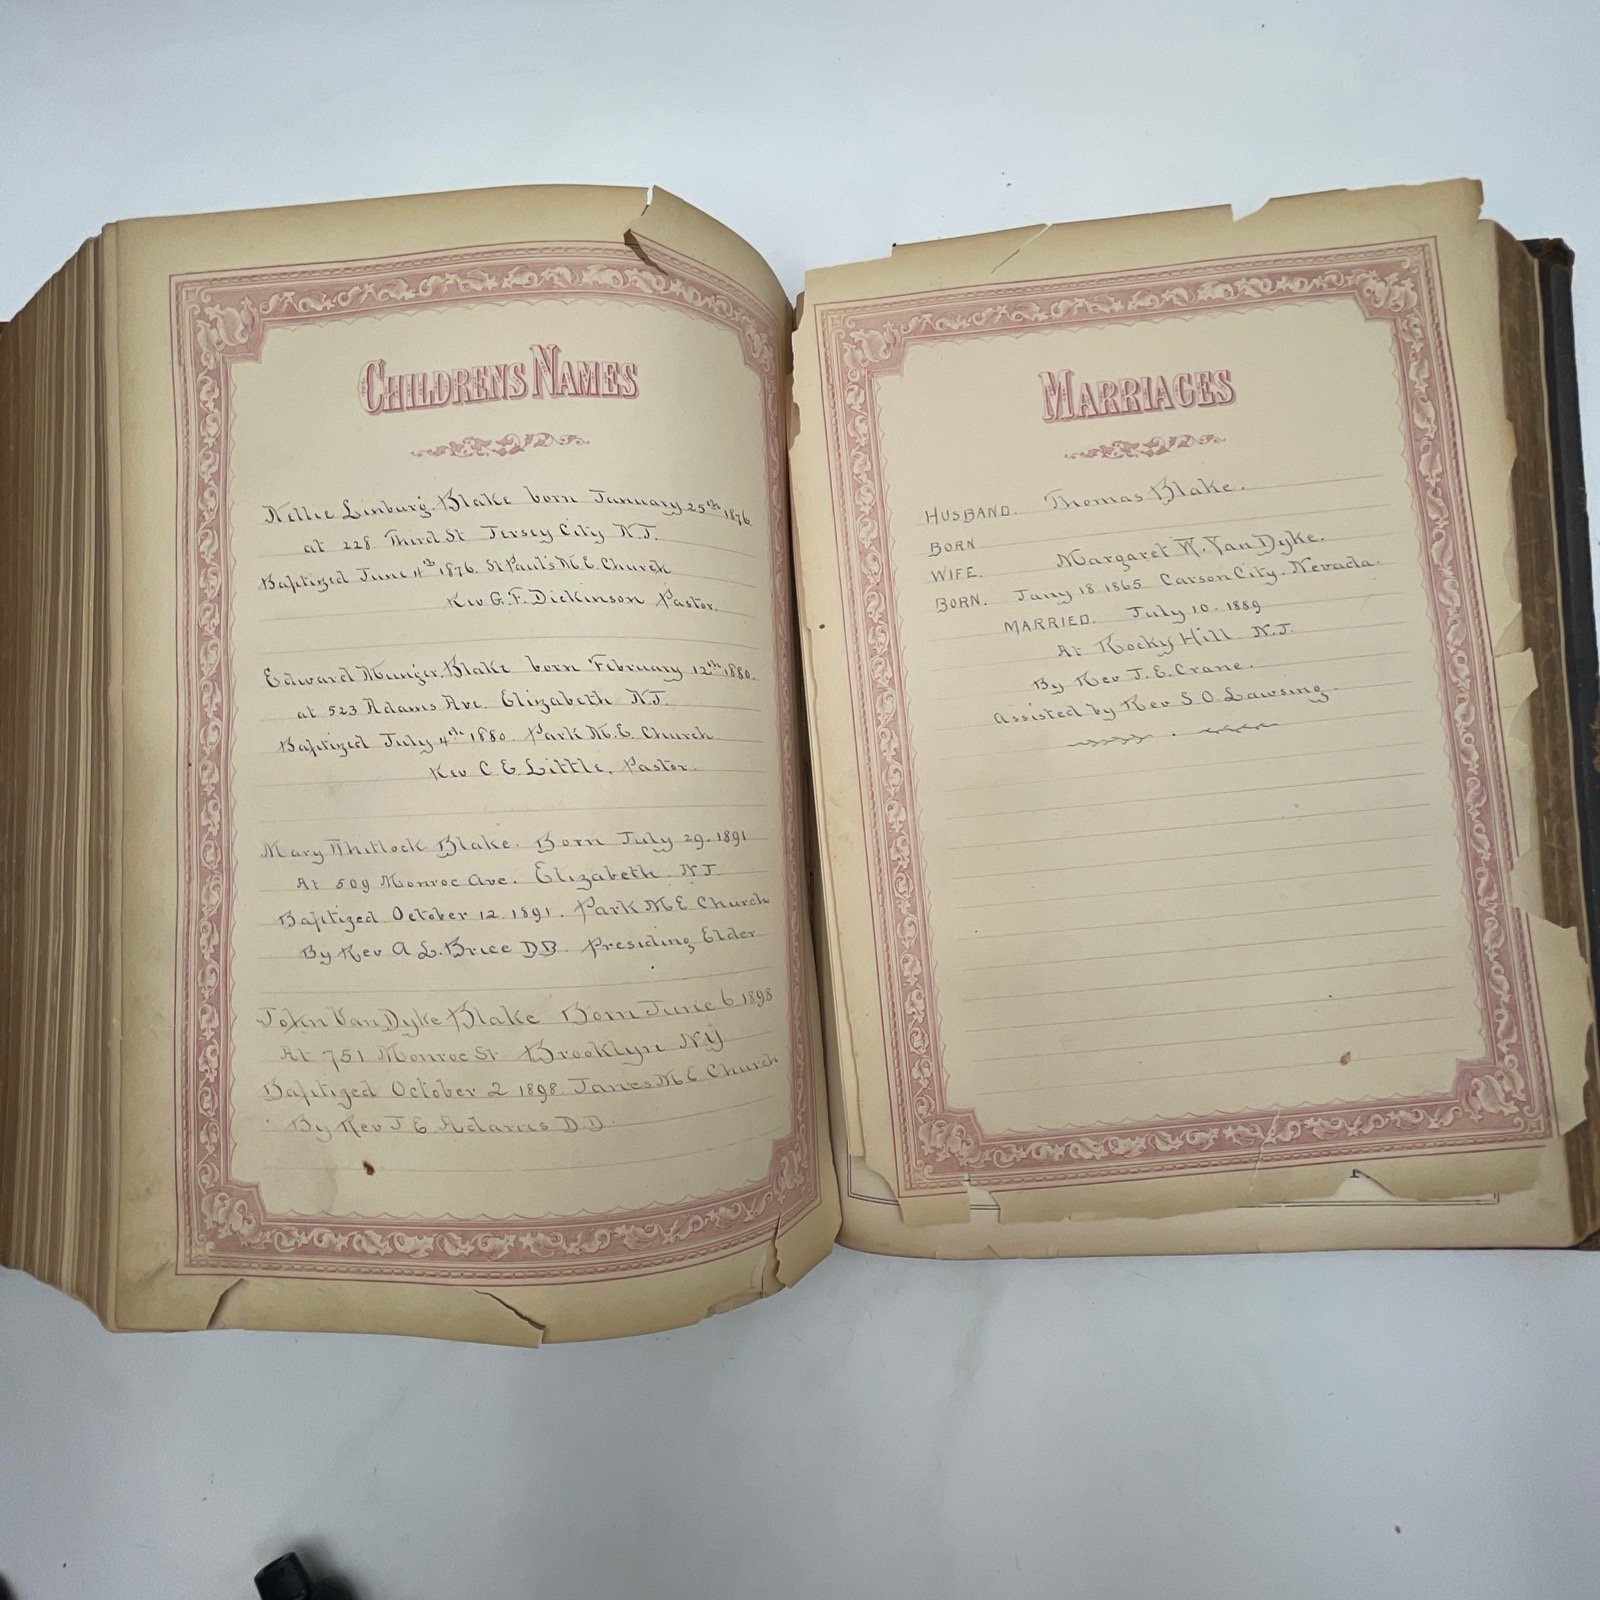 CHILDRENS NAMES
Nellie Linburg. Blake born January 25th 1876.
at 228 Third St Jersey City N.J.
Baptized June 4th 1876. St Paul's M.E. Church
Rev G. F. Dickinson Pastor.
Edward Munger. Blake born February 12th 1880.
at 523 Adams Ave. Elizabeth N.J.
Baptized July 4th 1880. Park M.E. Church
Rev C E Little, Pastor.
Mary Whitlock Blake. Born July 29. 1891
At 509 Monroe Ave. Elizabeth. N.J.
Baptized October 12. 1891. Park M E Church
By Rev A L. Brice D.D. Presiding Elder
John Van Dyke Blake Born June 6 1898
At 751 Monroe St Brooklyn Ny
Baptized October 2 1898. Janes M E Church
By Rev J E. Adams D.D.
MARRIAGES
HUSBAND. Thomas Blake.
BORN
WIFE. Margaret W. Van Dyke.
BORN. Jany 18 1865 Carson City. Nevada.
MARRIED. July 10. 1889
At Rocky Hill N.J.
By Rev J. E. Crane.
Assisted by Rev S O. Lawsing.